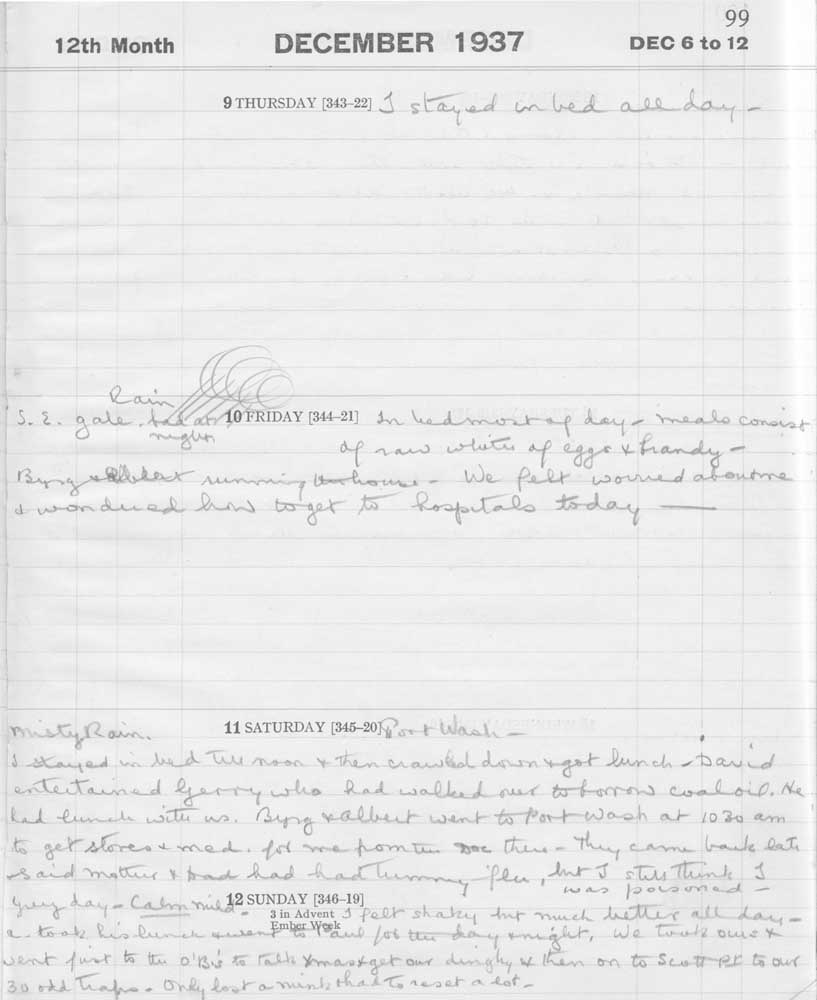 99
12th Month DECEMBER 1937 DEC 6 to 12
9 THURSDAY [343–22] I stayed in bed all day –
Rain
S. E. gale, bad at 10 FRIDAY [344–21] In bed most of day – meals consist
night
of raw whites of eggs & brandy –
Byrg & Albert running house – We felt worried about me
& wondered how to get to hospitals today —
Misty Rain. 11 SATURDAY [345–20] Port Wash –
I stayed in bed till noon & then crawled down & got lunch – David
entertained Gerry who had walked over to borrow coal oil. He
had lunch with us. Byrg & Albert went to Port Wash at 10 30 am
to get stores & med. for me from the Doc there – They came back late
& said mother & Dad had had tummy flu, but I still think I
was poisoned –
Grey day – Calm mild – 12 SUNDAY [346–19]
3 in Advent I felt shaky but much better all day –
Ember Week
a. took his lunch & went to Paul for the day & night. We took ours &
went first to the O'B's to talk Xmas & get our dinghy & then on to Scott Pt to our
30 odd traps – Only lost a mink & had to reset a lot –